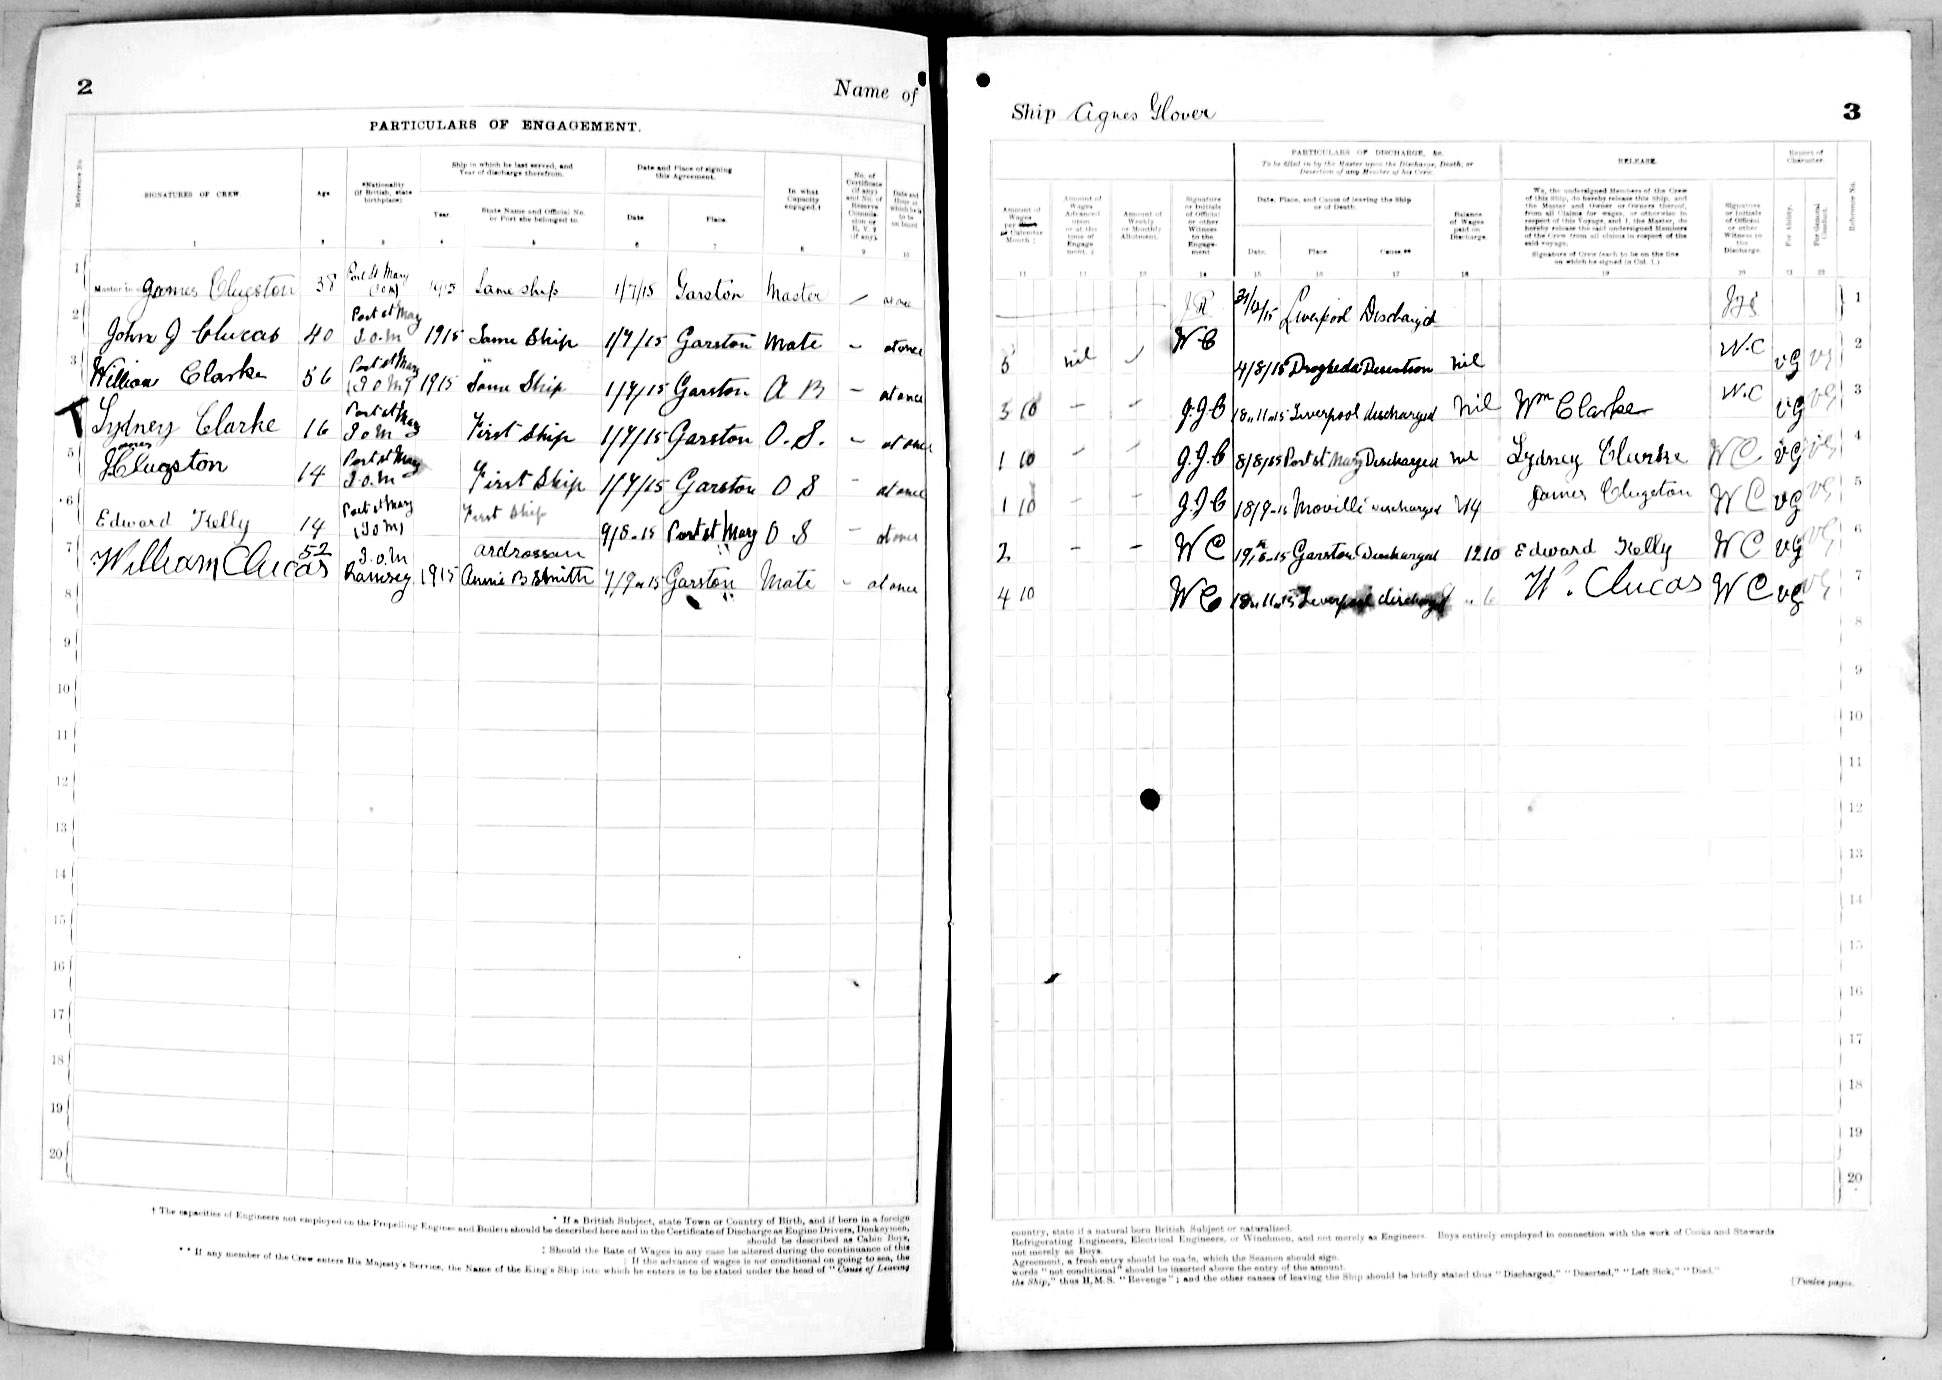 2
Name of
PARTICULARS OF ENGAGEMENT.
Reference No.
SIGNATURES OF CREW.
Age.
*Nationality (if British, state birthplace)
Ship in which he last served, and Year of discharge therefrom.
Year.
State Name and Official No. or Port she belonged to.
Date and Place of signing this Agreement.
Date.
Place.
In what Capacity engaged.†
No. of Certificate (if any) and No. of Reserve Commission or R.V.2 (if any).
Date and Hour at which he is to be on board
1 James Clugston 38 Port St Mary (IOM) 1915 Same ship 1/7/15 Garston Master at once
2 John J Clucas 40 Port St Mary I.o.M 1915 Same Ship 1/7/15 Garston Mate – at once
3 William Clarke 56 Port St Mary (I o M) 1915 Same Ship 1/7/15 Garston A B – at once
Sydney Clarke 16 Port St Mary I o M First Ship 1/7/15 Garston O.S. – at once
5 James Clugston 14 Port St Mary I.o.m First Ship 1/7/15 Garston O S – at once
6 Edward Kelly 14 Port St Mary (IOM) First Ship 9/8-15 Port St Mary O S – at once
7 William Clucas 52 I.o.M Ramsey 1915 Ardrossan Annie B Smith 7/9/15 Garston Mate – at once
8
9
10
11
12
13
14
15
16
17
18
19
20
* If a British Subject, state Town or Country of Birth, and if born in a foreign
† The capacities of Engineers not employed on the Propelling Engines and Boilers should be described here and in the Certificate of Discharge as Engine Drivers, Donkeymen,
should be described as Cabin Boys,
‡ Should the Rate of Wages in any case be altered during the continuance of this
: If the advance of wages is not conditional on going to sea, the
** If any member of the Crew enters His Majesty's Service, the Name of the King's Ship into which he enters is to be stated under the head of "Cause of Leaving
Ship Agnes Glover
3
PARTICULARS OF DISCHARGE, &c.
To be filled in by the Master upon the Discharge, Death, or Desertion of any Member of his Crew.
RELEASE.
Report of Character.
Amount of Wages per Calendar Month ‡
Amount of Wages Advanced upon or at the time of Engagement.
Amount of Weekly or Monthly Allotment.
Signature or Initials of Official or other Witness to the Engagement
Date, Place, and Cause of leaving the Ship or of Death.
Date.
Place
Cause.**
Balance of Wages paid on Discharge.
We, the undersigned Members of the Crew of this Ship, do hereby release this Ship, and the Master and Owner or Owners thereof, from all Claims for wages, or otherwise in respect of this Voyage, and I, the Master, do hereby release the said undersigned Members of the Crew from all claims in respect of the said voyage.
Signature of Crew (each to be on the line on which he signed in Col. 1.)
Signature or Initials of Official or other Witness to the Discharge.
For Ability.
For General Conduct.
Reference No.
11 12 13 14 15 16 17 18 19 20 21 22
31/12/15 Liverpool Discharged 1
5 nil W C 4/8/15 Drogheda Desertion nil W.C VG VG 2
3 10 – – J.J.C 18.11.15 Liverpool discharged nil Wm Clarke W.C VG VG 3
1 10 J.J.C 8/8/15 Port St Mary Discharged nil Sydney Clarke WC VG VG 4
1 10 J.J.C 18/9-15 Moville discharged James Clugston WC VG VG 5
2 – – WC Garston Discharged 12 10 Edward Kelly WC VG VG 6
4 10 WC 18.11.15 Liverpool discharged W. Clucas WC VG VG 7
8
9
10
11
12
13
14
15
16
17
18
19
20
country, state if a natural born British Subject or naturalized.
Refrigerating Engineers, Electrical Engineers, or Winchmen, and not merely as Engineers. Boys entirely employed in connection with the work of Cooks and Stewards
not merely as Boys.
Agreement, a fresh entry should be made, which the Seamen should sign.
words "not conditional" should be inserted above the entry of the amount.
the Ship," thus H.M.S. "Revenge"; and the other causes of leaving the Ship should be briefly stated thus "Discharged," "Deserted," "Left Sick," "Died."
[Twelve pages.